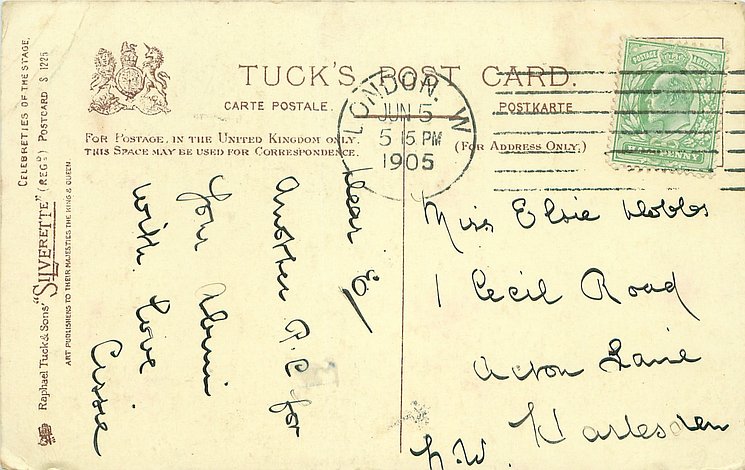 TUCK'S POST CARD.
CARTE POSTALE.
POSTKARTE
FOR POSTAGE, IN THE UNITED KINGDOM ONLY,
THIS SPACE MAY BE USED FOR CORRESPONDENCE.
(FOR ADDRESS ONLY.)
LONDON. W
JUN 5
5 15 PM
1905
POSTAGE & REVENUE
HALFPENNY
CELEBRETIES OF THE STAGE.
Raphael Tuck & Sons' "SILVERETTE" (REGD) POSTCARD S 1225
ART PUBLISHERS TO THEIR MAJESTIES THE KING & QUEEN.
Dear E/
Another P.C for
Your Album
with love
Cissie
Miss Elsie Hobbs
1 Cecil Road
Acton Lane
N.W. Harlesden